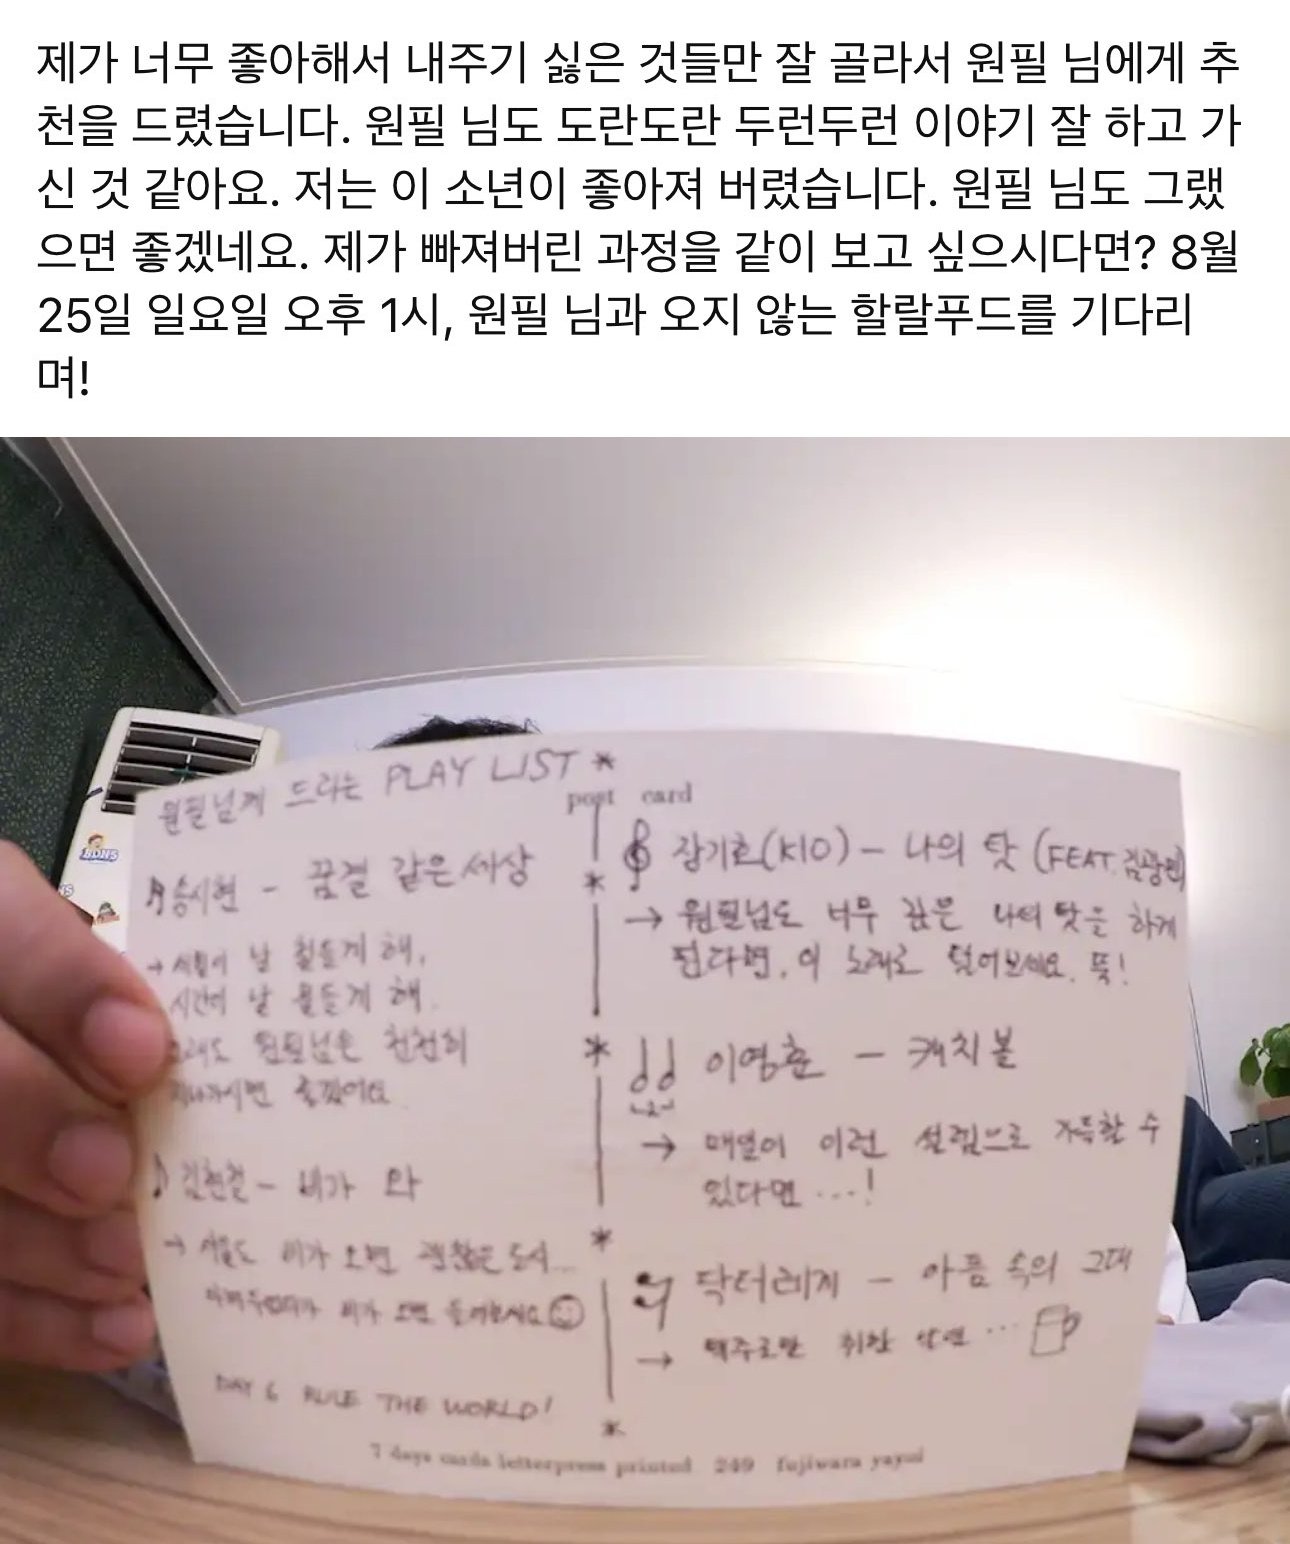 제가 너무 좋아해서 내주기 싫은 것들만 잘 골라서 원필 님에게 추
천을 드렸습니다. 원필 님도 도란도란 두런두런 이야기 잘 하고 가
신 것 같아요. 저는 이 소년이 좋아져 버렸습니다. 원필 님도 그랬
으면 좋겠네요. 제가 빠져버린 과정을 같이 보고 싶으시다면? 8월
25일 일요일 오후 1시, 원필 님과 오지 않는 할랄푸드를 기다리
며!
원필님께 드리는 PLAY LIST
post card
송시현 - 꿈결 같은 세상
→ 시월이 날 철들게 해,
시간이 날 물들게 해.
그래도 원필님은 천천히
지나가시면 좋겠어요
김현철 - 비가 와
→ 서울도 비가 오면 괜찮은 도시...
비가 오면 들어보세요
DAY 6 RULE THE WORLD!
장기호(KIO) - 나의 탓 (FEAT. 김광민)
→ 원필님도 너무 많은 나의 탓을 하게
된다면, 이 노래로 털어보세요. 뚝!
이영훈 - 캐치볼
→ 매일이 이런 설렘으로 가득할 수
있다면 ...!
닥터레게 - 아픔 속의 그대
→ 맥주로만 취한 밤엔 ...
7 days cards letterpress printed 249 fujiwara yayoi
BONS